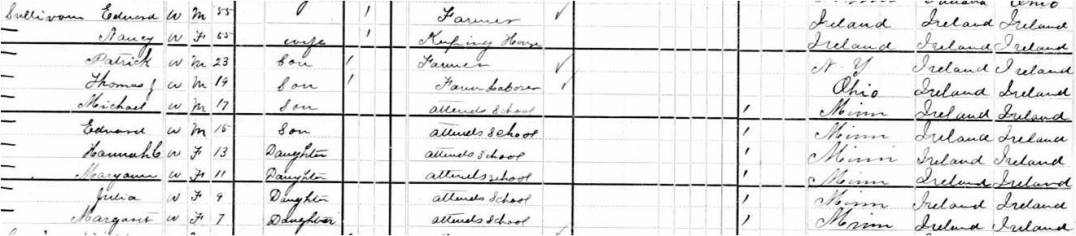 Ohio
Sullivan Edward W M 55 1 Farmer ✓ Ireland Ireland Ireland
— Nancy W F 55 wife 1 Keeping House Ireland Ireland Ireland
— Patrick W M 23 Son 1 Farmer ✓ N Y Ireland Ireland
— Thomas J W M 19 Son 1 Farm Laborer ✓ Ohio Ireland Ireland
— Michael W M 17 Son attends School 1 Minn Ireland Ireland
Edward W M 15 Son attends School 1 Minn Ireland Ireland
— Hannah C W F 13 Daughter attends School 1 Minn Ireland Ireland
— Maryann W F 11 Daughter attends School 1 Minn Ireland Ireland
— Julia W F 9 Daughter attends School 1 Minn Ireland Ireland
— Margaret W F 7 Daughter attends School 1 Minn Ireland Ireland